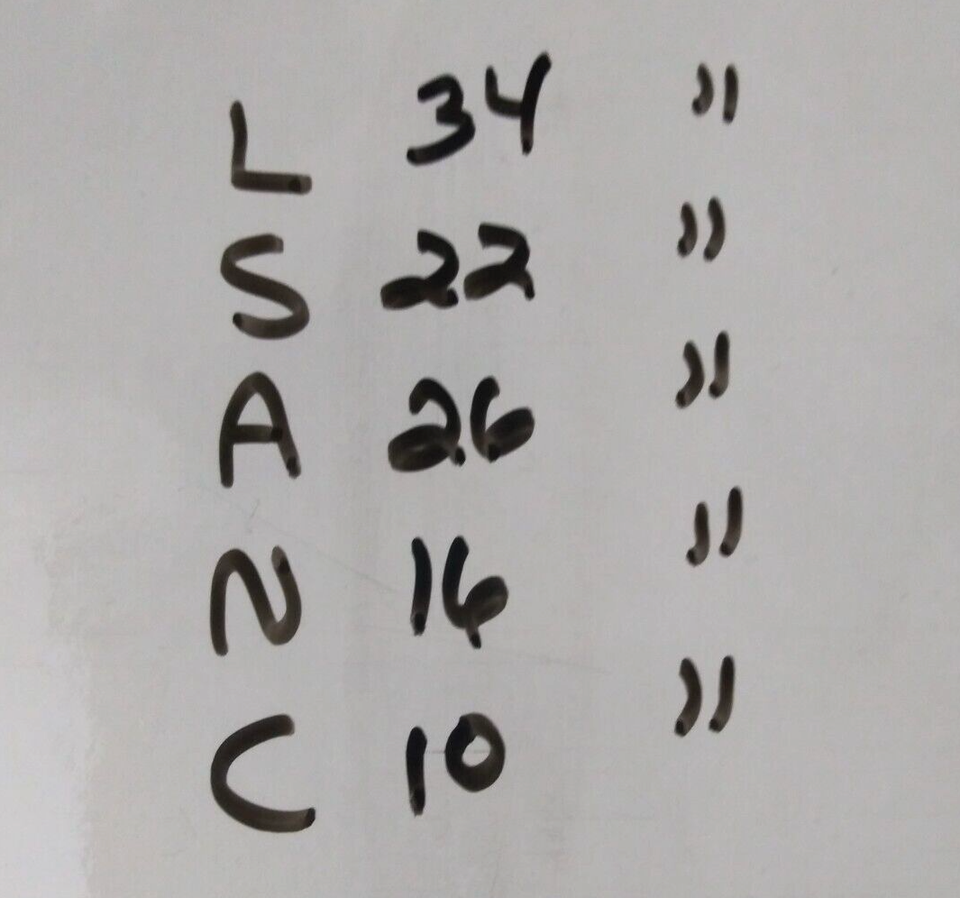 L 34 "
S 22 "
A 26 "
N 16 "
C 10 "